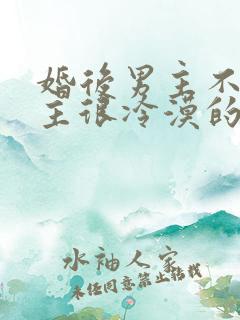 婚後男主不
主很冷漠的
水袖人家
未经同意禁止转载